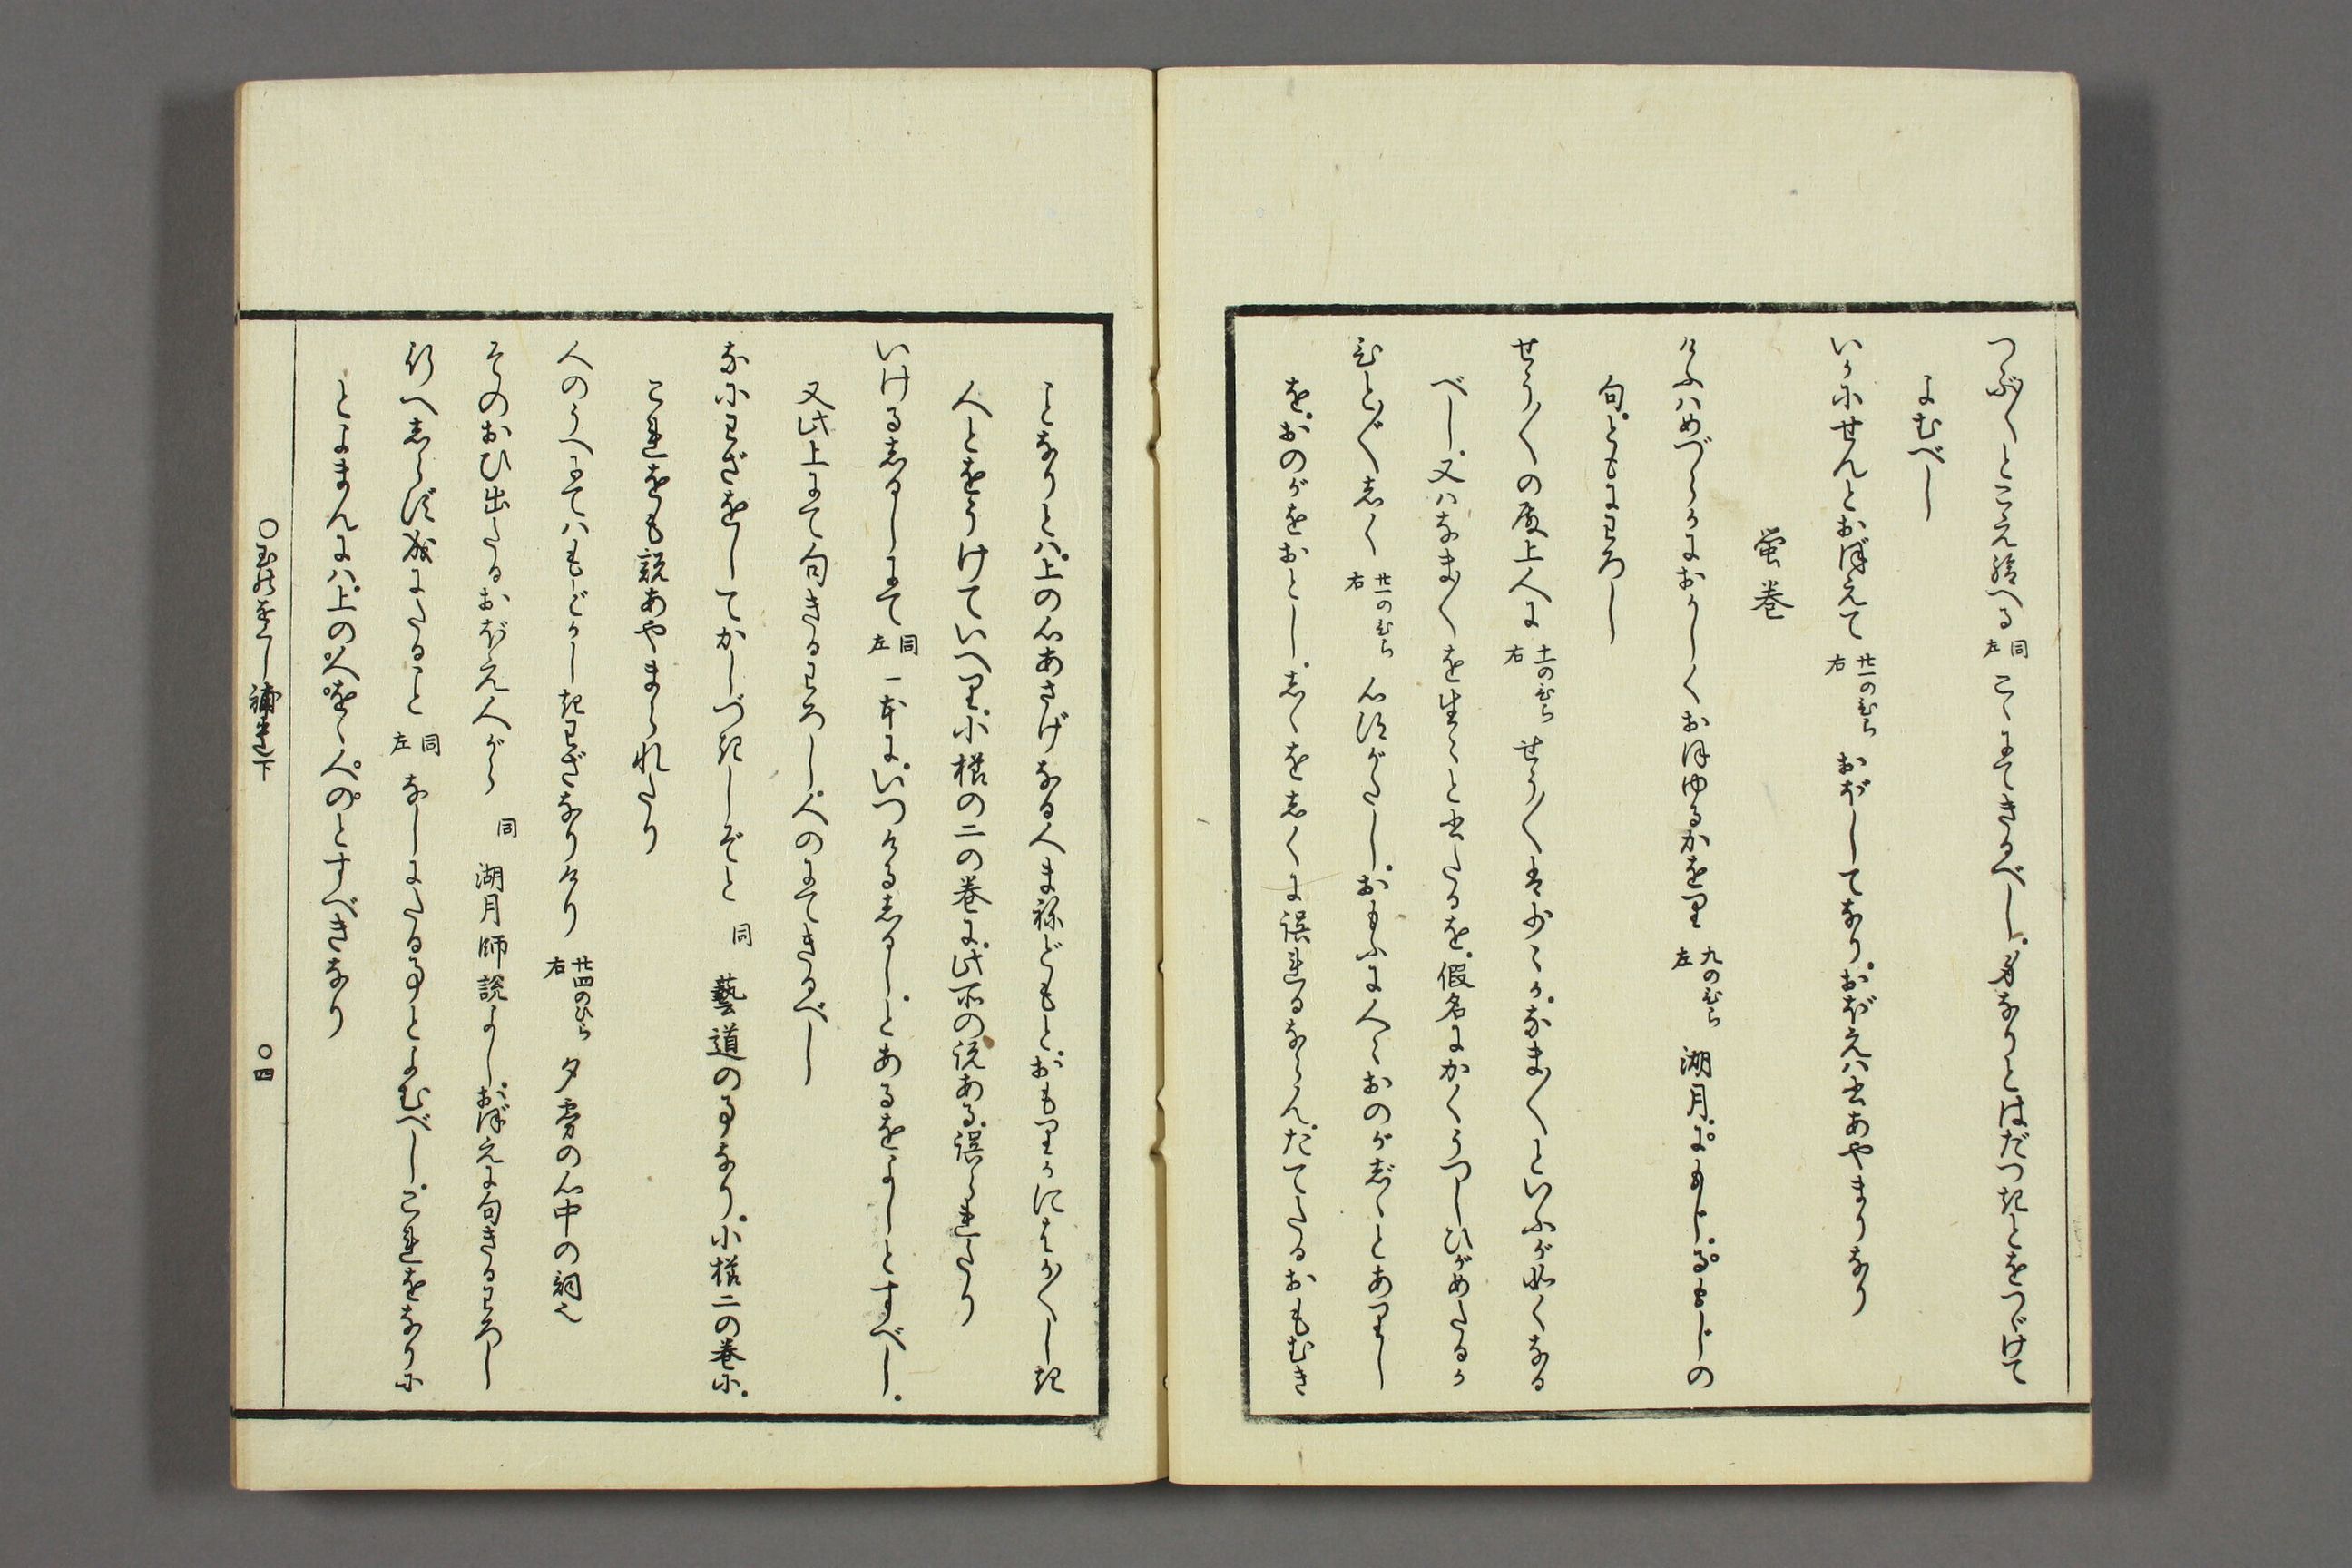 つぶ〳〵とこえ給へる 同左 こゝにてきるべし。身なりとはだつきとをつゞけて
よむべし
いかにせんとおぼえて 廿一のひら右 おぼしてなり。おぼえハ書あやまりなり
螢巻
けふハめづらかにおかしくおぼゆるかをり 九のひら左 湖月。にもじ。るもじの
句。ともにわろし
せう〳〵の殿上人に 十一のひら右 せう〳〵は少々か。なま〳〵といふが如くなる
べし。又ハなま〳〵を生々と書たるを。假名にかくうつしひがめたるか
ひと〴〵しく 廿一のひら右 心得がたし。おもふに人々おのがじゝとありし
を。おのがをおとし。しゝをしくに誤れるならん。たてたるおもむき
ことなりとハ。上の心あさげなる人まねどもと。おもりかにはか〴〵しき
人とをうけていへり。小櫛の二の巻に。此所の説ある。誤られたり
いける志るしにて 同左 一本に。いつける志るし。とあるをよしとすべし。
又此上にて句きるわろし。人のにてきるべし
なにわざをしてかしづきしぞと 同 藝道の事なり。小櫛二の巻に。
これをも説あやまられたり
人のうへにてハもどかしきわざなりけり 廿四のひら右 夕霧の心中の詞也
そのおひ出たるおぼえ人がら 同 湖月師説よし。おぼえに句きるわろし
行へしらず成にたること 同左 なしにたる事とよむべし。これをなりに
とよまんにハ。上の人をゝ人のとすべきなり
○玉のをくし補遺下 ○四